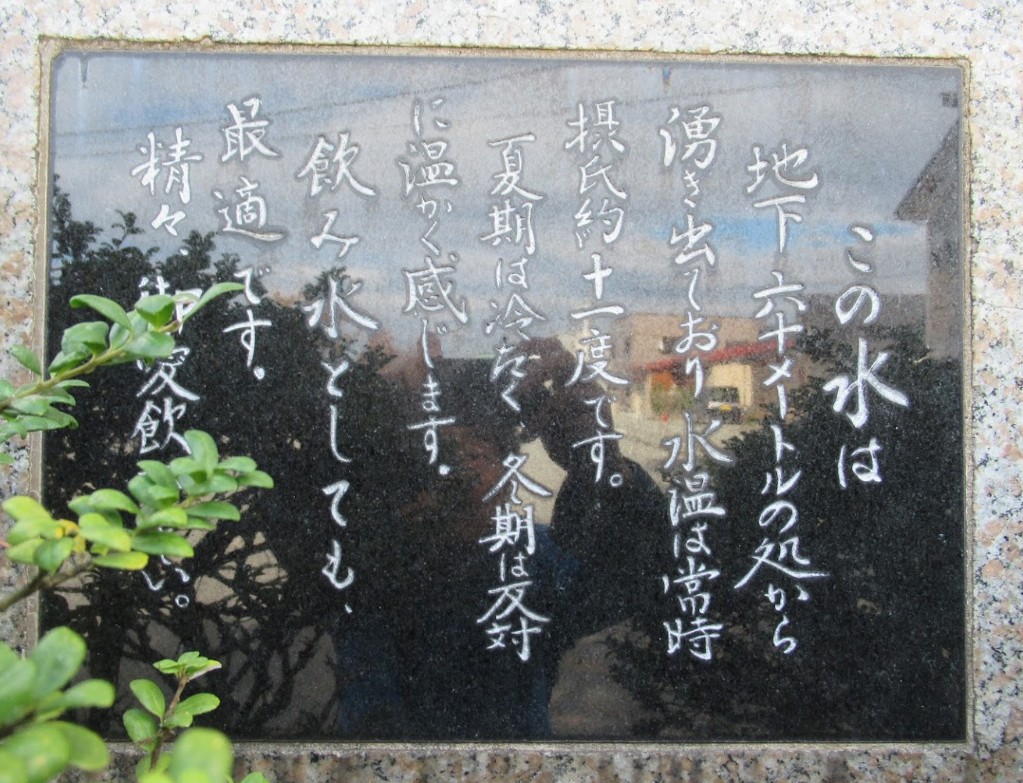 この水は
地下六十メートルの処から
湧き出ており水温は常時
摂氏約十一度です。
夏期は冷たく、冬期は反対
に温かく感じます。
飲み水としても、
最適です。
精々、御愛飲い。